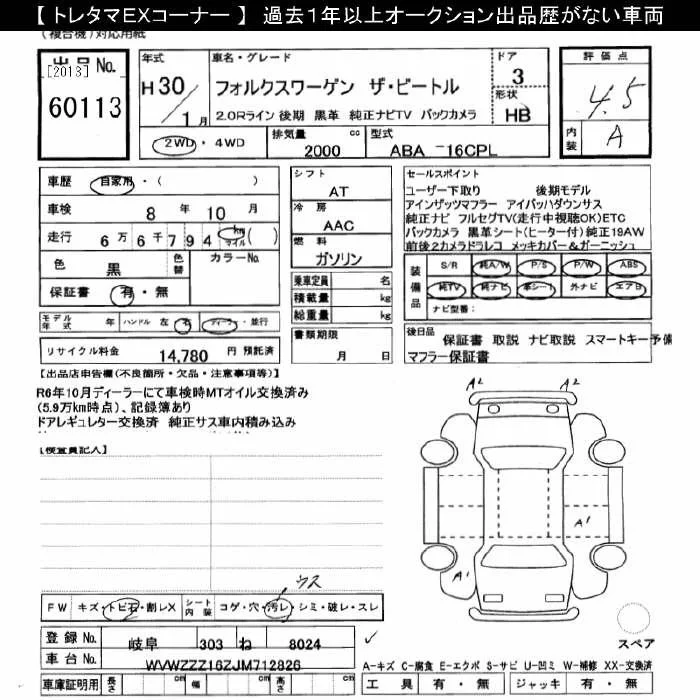 【 トレタマEXコーナー 】 過去１年以上オークション出品歴がない車両
(複合機)対応用紙
出品 No.
[2013]
60113
年式
H 30 / 1 月
車名・グレード
フォルクスワーゲン ザ・ビートル
2.0Rライン 後期 黒革 純正ナビTV バックカメラ
ドア
3
形状
HB
評価点
4.5
内装
A
2WD ・ 4WD
排気量
2000 cc
型式
ABA -16CPL
車歴 自家用 ・ ( )
車検 8 年 10 月
走行 6 万 6 千 7 9 4 km マイル ( )
色 黒
色替
カラーNo.
保証書 有 ・ 無
モデル年式 年
ハンドル 左 右
ディーラー ・ 並行
リサイクル料金 14,780 円 預託済
シフト
AT
冷房
AAC
燃料
ガソリン
乗車定員 名
積載量 kg
総重量 kg
書類期限
月 日
セールスポイント
ユーザー下取り 後期モデル
アインザッツマフラー アイバッハダウンサス
純正ナビ フルセグTV(走行中視聴OK)ETC
バックカメラ 黒革シート(ヒーター付) 純正19AW
前後2カメラドラレコ メッキカバー&ガーニッシュ
装備品
S/R 純A/W P/S P/W ABS
純TV 純ナビ 革シート 外ナビ エアB
ナビ型番:
後日品
保証書 取説 ナビ取説 スマートキー予備
マフラー保証書
【出品店申告欄(不良箇所・欠品・注意事項等)】
R6年10月ディーラーにて車検時MTオイル交換済み
(5.9万km時点)、記録簿あり
ドアレギュレター交換済 純正サス車内積み込み
【検査員記入】
A2 A2
A1
A1
スペア
ウス
FW キズ・トビ石・割レX
シート内装 コゲ・穴・汚レ・シミ・破レ・スレ
登録 No. 岐阜 303 ね 8024
車台 No. WVWZZZ16ZJM712826
車庫証明用 長さ cm 幅 cm 高さ cm
A-キズ C-腐食 E-エクボ S-サビ U-凹ミ W-補修 XX-交換済
工具 有 ・ 無 ジャッキ 有 ・ 無